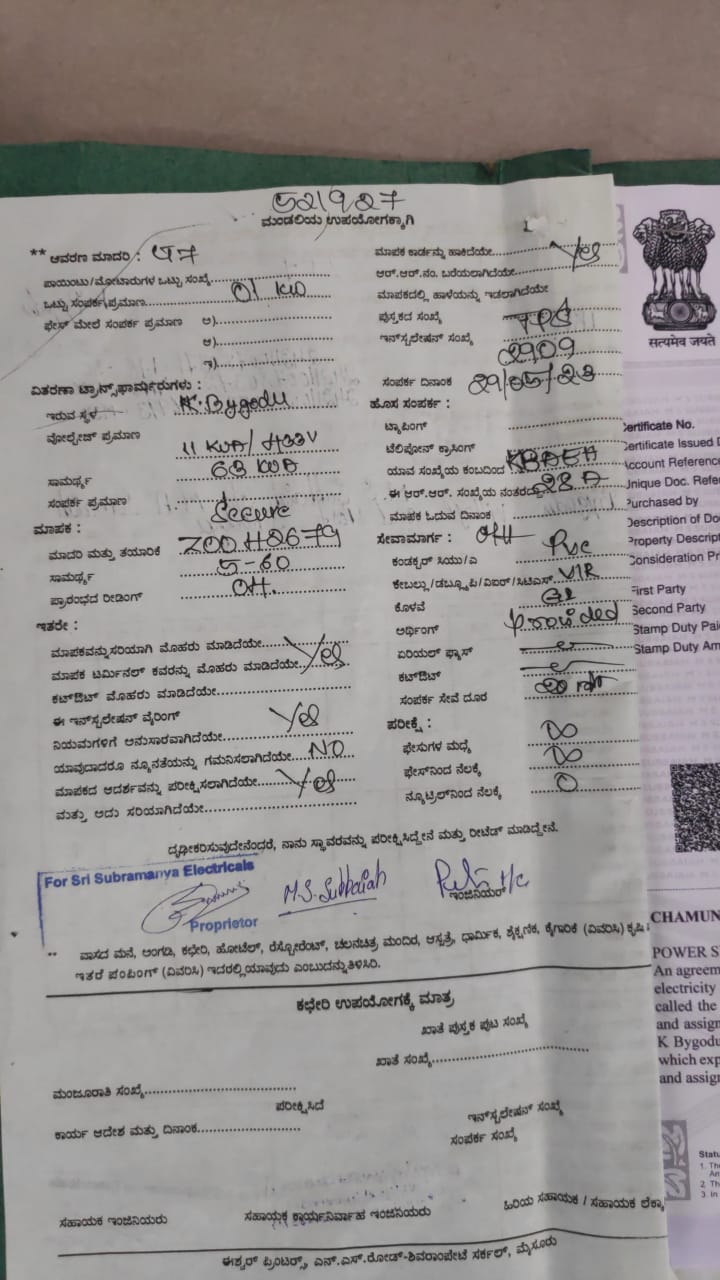 521927
ಮಂಡಲಿಯ ಉಪಯೋಗಕ್ಕಾಗಿ
** ಆವರಣ ಮಾದರಿ :
ಪಾಯಿಂಟು/ಮೋಟಾರುಗಳ ಒಟ್ಟು ಸಂಖ್ಯೆ
ಒಟ್ಟು ಸಂಪರ್ಕ ಪ್ರಮಾಣ 01 KW
ಫೇಸ್ ಮೇಲೆ ಸಂಪರ್ಕ ಪ್ರಮಾಣ ಅ)
ಆ)
ಇ)
ವಿತರಣಾ ಟ್ರಾನ್ಸ್‌ಫಾರ್ಮರುಗಳು :
ಇರುವ ಸ್ಥಳ K.Bygodu
ವೋಲ್ಟೇಜ್ ಪ್ರಮಾಣ 11 KVA/ 433V
ಸಾಮರ್ಥ್ಯ 63 KVA
ಸಂಪರ್ಕ ಪ್ರಮಾಣ
ಮಾಪಕ : Secure
ಮಾದರಿ ಮತ್ತು ತಯಾರಿಕೆ
ಸಾಮರ್ಥ್ಯ 5-60
ಪ್ರಾರಂಭದ ರೀಡಿಂಗ್
ಇತರೇ :
ಮಾಪಕವನ್ನು ಸರಿಯಾಗಿ ಮೊಹರು ಮಾಡಿದೆಯೇ
ಮಾಪಕ ಟರ್ಮಿನಲ್ ಕವರನ್ನು ಮೊಹರು ಮಾಡಿದೆಯೇ Yes
ಕಟ್‌ಔಟ್ ಮೊಹರು ಮಾಡಿದೆಯೇ
ಈ ಇನ್‌ಸ್ಟಲೇಷನ್ ವೈರಿಂಗ್
ನಿಯಮಗಳಿಗೆ ಅನುಸಾರವಾಗಿದೆಯೇ Yes
ಯಾವುದಾದರೂ ನ್ಯೂನತೆಯನ್ನು ಗಮನಿಸಲಾಗಿದೆಯೇ NO
ಮಾಪಕದ ಆದರ್ಶವನ್ನು ಪರೀಕ್ಷಿಸಲಾಗಿದೆಯೇ Yes
ಮತ್ತು ಅದು ಸರಿಯಾಗಿದೆಯೇ
ಮಾಪಕ ಕಾರ್ಡನ್ನು ಹಾಕಿದೆಯೇ Yes
ಆರ್.ಆರ್.ನಂ. ಬರೆಯಲಾಗಿದೆಯೇ
ಮಾಪಕದಲ್ಲಿ ಹಾಳೆಯನ್ನು ಇಡಲಾಗಿದೆಯೇ
ಪುಸ್ತಕದ ಸಂಖ್ಯೆ
ಇನ್‌ಸ್ಟಲೇಷನ್ ಸಂಖ್ಯೆ 2909
ಸಂಪರ್ಕ ದಿನಾಂಕ 29/05/23
ಹೊಸ ಸಂಪರ್ಕ :
ಟ್ಯಾಪಿಂಗ್
ಟೆಲಿಫೋನ್ ಕ್ರಾಸಿಂಗ್
ಯಾವ ಸಂಖ್ಯೆಯ ಕಂಬದಿಂದ
ಈ ಆರ್.ಆರ್. ಸಂಖ್ಯೆಯ ನಂತರದ್ದು
ಮಾಪಕ ಓದುವ ದಿನಾಂಕ
ಸೇವಾಮಾರ್ಗ : OH
ಕಂಡಕ್ಟರ್ ಸಿಯು/ಎ Pvc
ಕೇಬಲ್ಲು/ಡಬ್ಲ್ಯೂಪಿ/ವಿಐರ್/ಸಿಟಿಎಸ್ VIR
ಕೊಳವೆ GI
ಅರ್ಥಿಂಗ್ provided
ಏರಿಯಲ್ ಫ್ಯೂಸ್
ಕಟ್‌ಔಟ್
ಸಂಪರ್ಕ ಸೇವೆ ದೂರ 20 mt
ಪರೀಕ್ಷೆ :
ಫೇಸುಗಳ ಮಧ್ಯೆ
ಫೇಸ್‌ನಿಂದ ನೆಲಕ್ಕೆ
ನ್ಯೂಟ್ರಲ್‌ನಿಂದ ನೆಲಕ್ಕೆ O
ದೃಢೀಕರಿಸುವುದೇನೆಂದರೆ, ನಾನು ಸ್ಥಾವರವನ್ನು ಪರೀಕ್ಷಿಸಿದ್ದೇನೆ ಮತ್ತು ರೀಟೆಡ್ ಮಾಡಿದ್ದೇನೆ.
For Sri Subramanya Electricals
M.S.Subbaiah
Proprietor
ಇಂಜಿನಿಯರ್
** ವಾಸದ ಮನೆ, ಅಂಗಡಿ, ಕಛೇರಿ, ಹೋಟೆಲ್, ರೆಸ್ಟೋರೆಂಟ್, ಚಲನಚಿತ್ರ ಮಂದಿರ, ಆಸ್ಪತ್ರೆ, ಧಾರ್ಮಿಕ, ಶೈಕ್ಷಣಿಕ, ಕೈಗಾರಿಕೆ (ವಿವರಿಸಿ) ಕೃಷಿ
ಇತರೆ ಪಂಪಿಂಗ್ (ವಿವರಿಸಿ) ಇದರಲ್ಲಿಯಾವುದು ಎಂಬುದನ್ನು ತಿಳಿಸಿರಿ.
ಕಛೇರಿ ಉಪಯೋಗಕ್ಕೆ ಮಾತ್ರ
ಖಾತೆ ಪುಸ್ತಕ ಪುಟ ಸಂಖ್ಯೆ
ಖಾತೆ ಸಂಖ್ಯೆ
ಮಂಜೂರಾತಿ ಸಂಖ್ಯೆ
ಪರೀಕ್ಷಿಸಿದೆ
ಇನ್‌ಸ್ಟಲೇಷನ್ ಸಂಖ್ಯೆ
ಕಾರ್ಯ ಆದೇಶ ಮತ್ತು ದಿನಾಂಕ
ಸಂಪರ್ಕ ಸಂಖ್ಯೆ
ಸಹಾಯಕ ಇಂಜಿನಿಯರು
ಸಹಾಯಕ ಕಾರ್ಯನಿರ್ವಾಹ ಇಂಜಿನಿಯರು
ಹಿರಿಯ ಸಹಾಯಕ / ಸಹಾಯಕ
ಈಶ್ವರ್ ಪ್ರಿಂಟರ್ಸ್, ಎನ್.ಎಸ್.ರೋಡ್-ಶಿವರಾಂಪೇಟೆ ಸರ್ಕಲ್, ಮೈಸೂರು
सत्यमेव जयते
Certificate No.
Certificate Issued
Account Reference
Unique Doc. Refe
Purchased by
Description of Do
Property Descript
Consideration Pr
First Party
Second Party
Stamp Duty Paid
Stamp Duty Am
CHAMUN
POWER S
An agreem
electricity
called the
and assign
K Bygodu
which exp
and assig